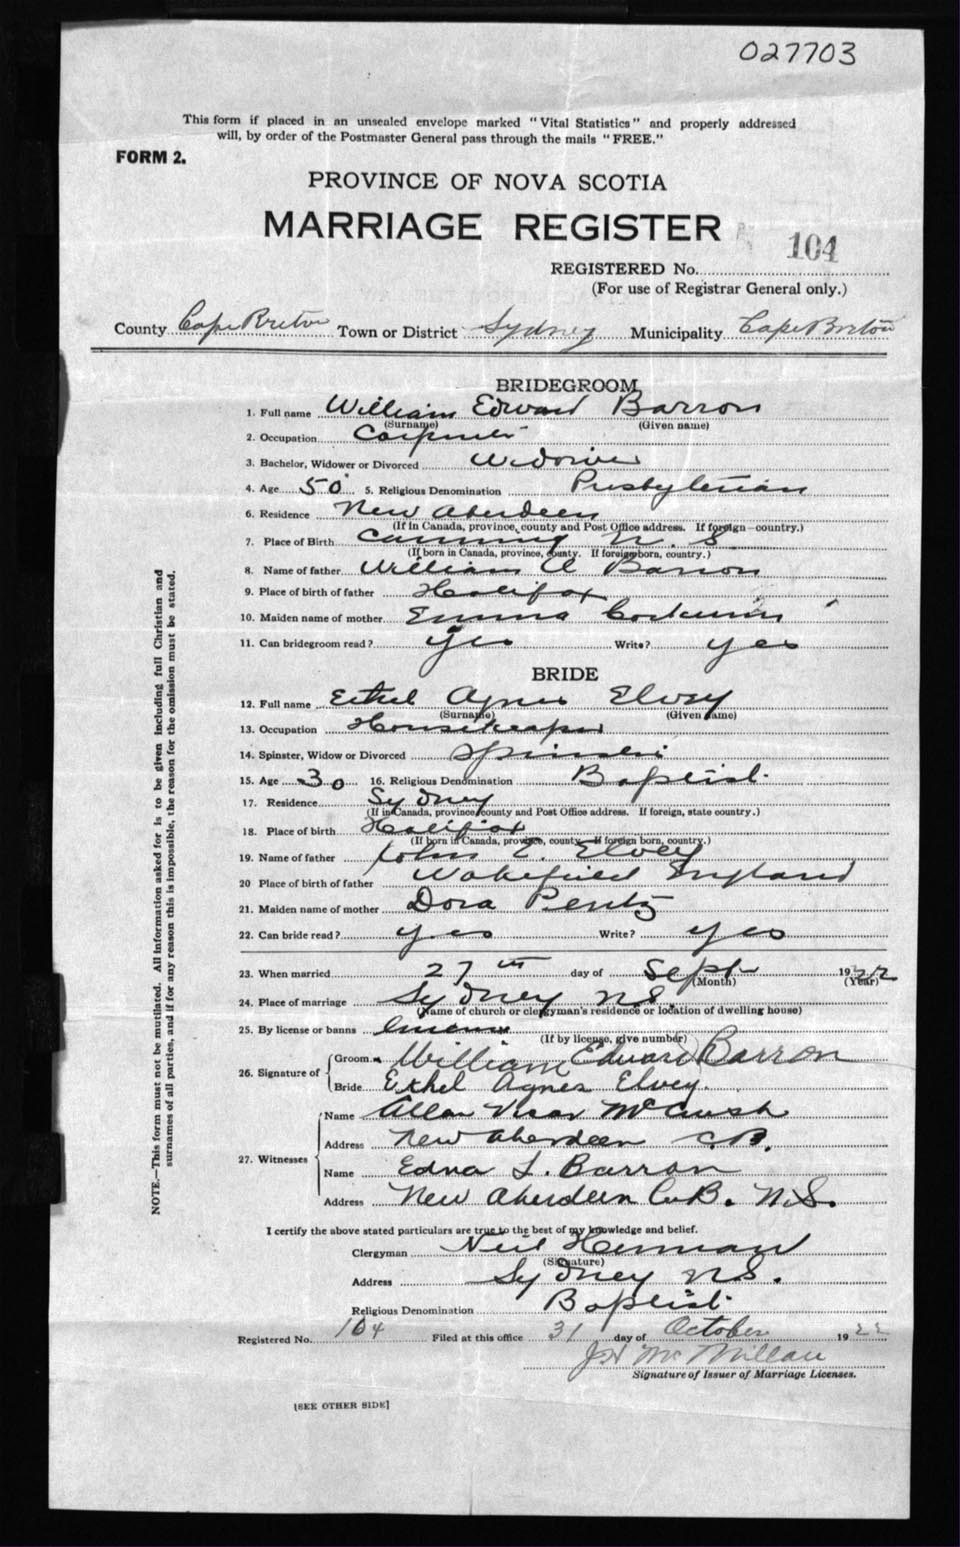 027703
This form if placed in an unsealed envelope marked "Vital Statistics" and properly addressed
will, by order of the Postmaster General pass through the mails "FREE."
FORM 2.
PROVINCE OF NOVA SCOTIA
MARRIAGE REGISTER
104
REGISTERED No.
(For use of Registrar General only.)
County Cape Breton Town or District Sydney Municipality Cape Breton
BRIDEGROOM
1. Full name William Edward Barron
(Surname) (Given name)
2. Occupation Carpenter
3. Bachelor, Widower or Divorced Widower
4. Age 50 5. Religious Denomination Presbyterian
6. Residence New Aberdeen
(If in Canada, province, county and Post Office address. If foreign—country.)
7. Place of Birth Canning N. S.
(If born in Canada, province, county. If foreign born, country.)
8. Name of father William A Barron
9. Place of birth of father Halifax
10. Maiden name of mother Emma
11. Can bridegroom read? Yes Write? yes
BRIDE
12. Full name Ethel Agnes Elvey
(Surname) (Given name)
13. Occupation Housekeeper
14. Spinster, Widow or Divorced Spinster
15. Age 30 16. Religious Denomination Baptist
17. Residence Sydney
(If in Canada, province, county and Post Office address. If foreign, state country.)
18. Place of birth Halifax
(If born in Canada, province, county. If foreign born, country.)
19. Name of father John E. Elvey
20 Place of birth of father Wakefield England
21. Maiden name of mother Dora Pentz
22. Can bride read? yes Write? yes
23. When married 27th day of Sept 1922
(Month) (Year)
24. Place of marriage Sydney N.S.
(Name of church or clergyman's residence or location of dwelling house)
25. By license or banns
(If by license, give number)
26. Signature of Groom William Edward Barron
Bride Ethel Agnes Elvey.
27. Witnesses
Name Allan
Address New Aberdeen C.B.
Name Edna L. Barron
Address New Aberdeen C.B. N.S.
I certify the above stated particulars are true to the best of my knowledge and belief.
Clergyman Neil Herman
(Signature)
Address Sydney N.S.
Religious Denomination Baptist
Registered No. 104 Filed at this office 31 day of October 1922
J H McMillan
Signature of Issuer of Marriage Licenses.
[SEE OTHER SIDE]
NOTE.—This form must not be mutilated. All information asked for is to be given including full Christian and
surnames of all parties, and if for any reason this is impossible, the reason for the omission must be stated.